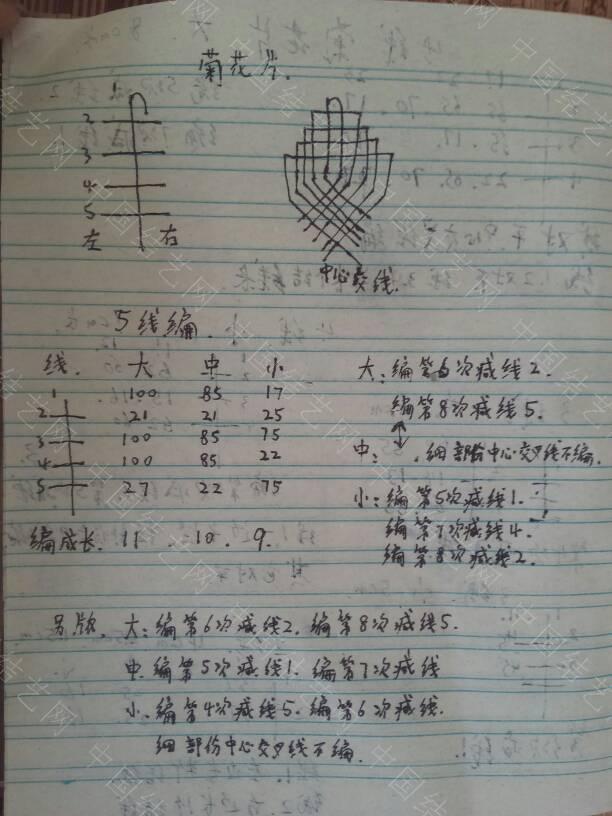 菊花片.
1
2
3
4
5
左 右
中心交线.
5线编.
线. 大 中 小
1 100 85 17
2 21 21 25
3 100 85 75
4 100 85 22
5 27 22 75
编成长. 11 . 10 . 9.
大: 编第6次减线2.
编第8次减线5.
中: . 细部份中心交叉线不编.
小: 编第5次减线1.
编第7次减线4.
编第8次减线2.
另版. 大: 编第6次减线2. 编第8次减线5.
中. 编第5次减线1. 编第7次减线
小. 编第4次减线5. 编第6次减线.
细部份中心交叉线不编.
中国结艺网